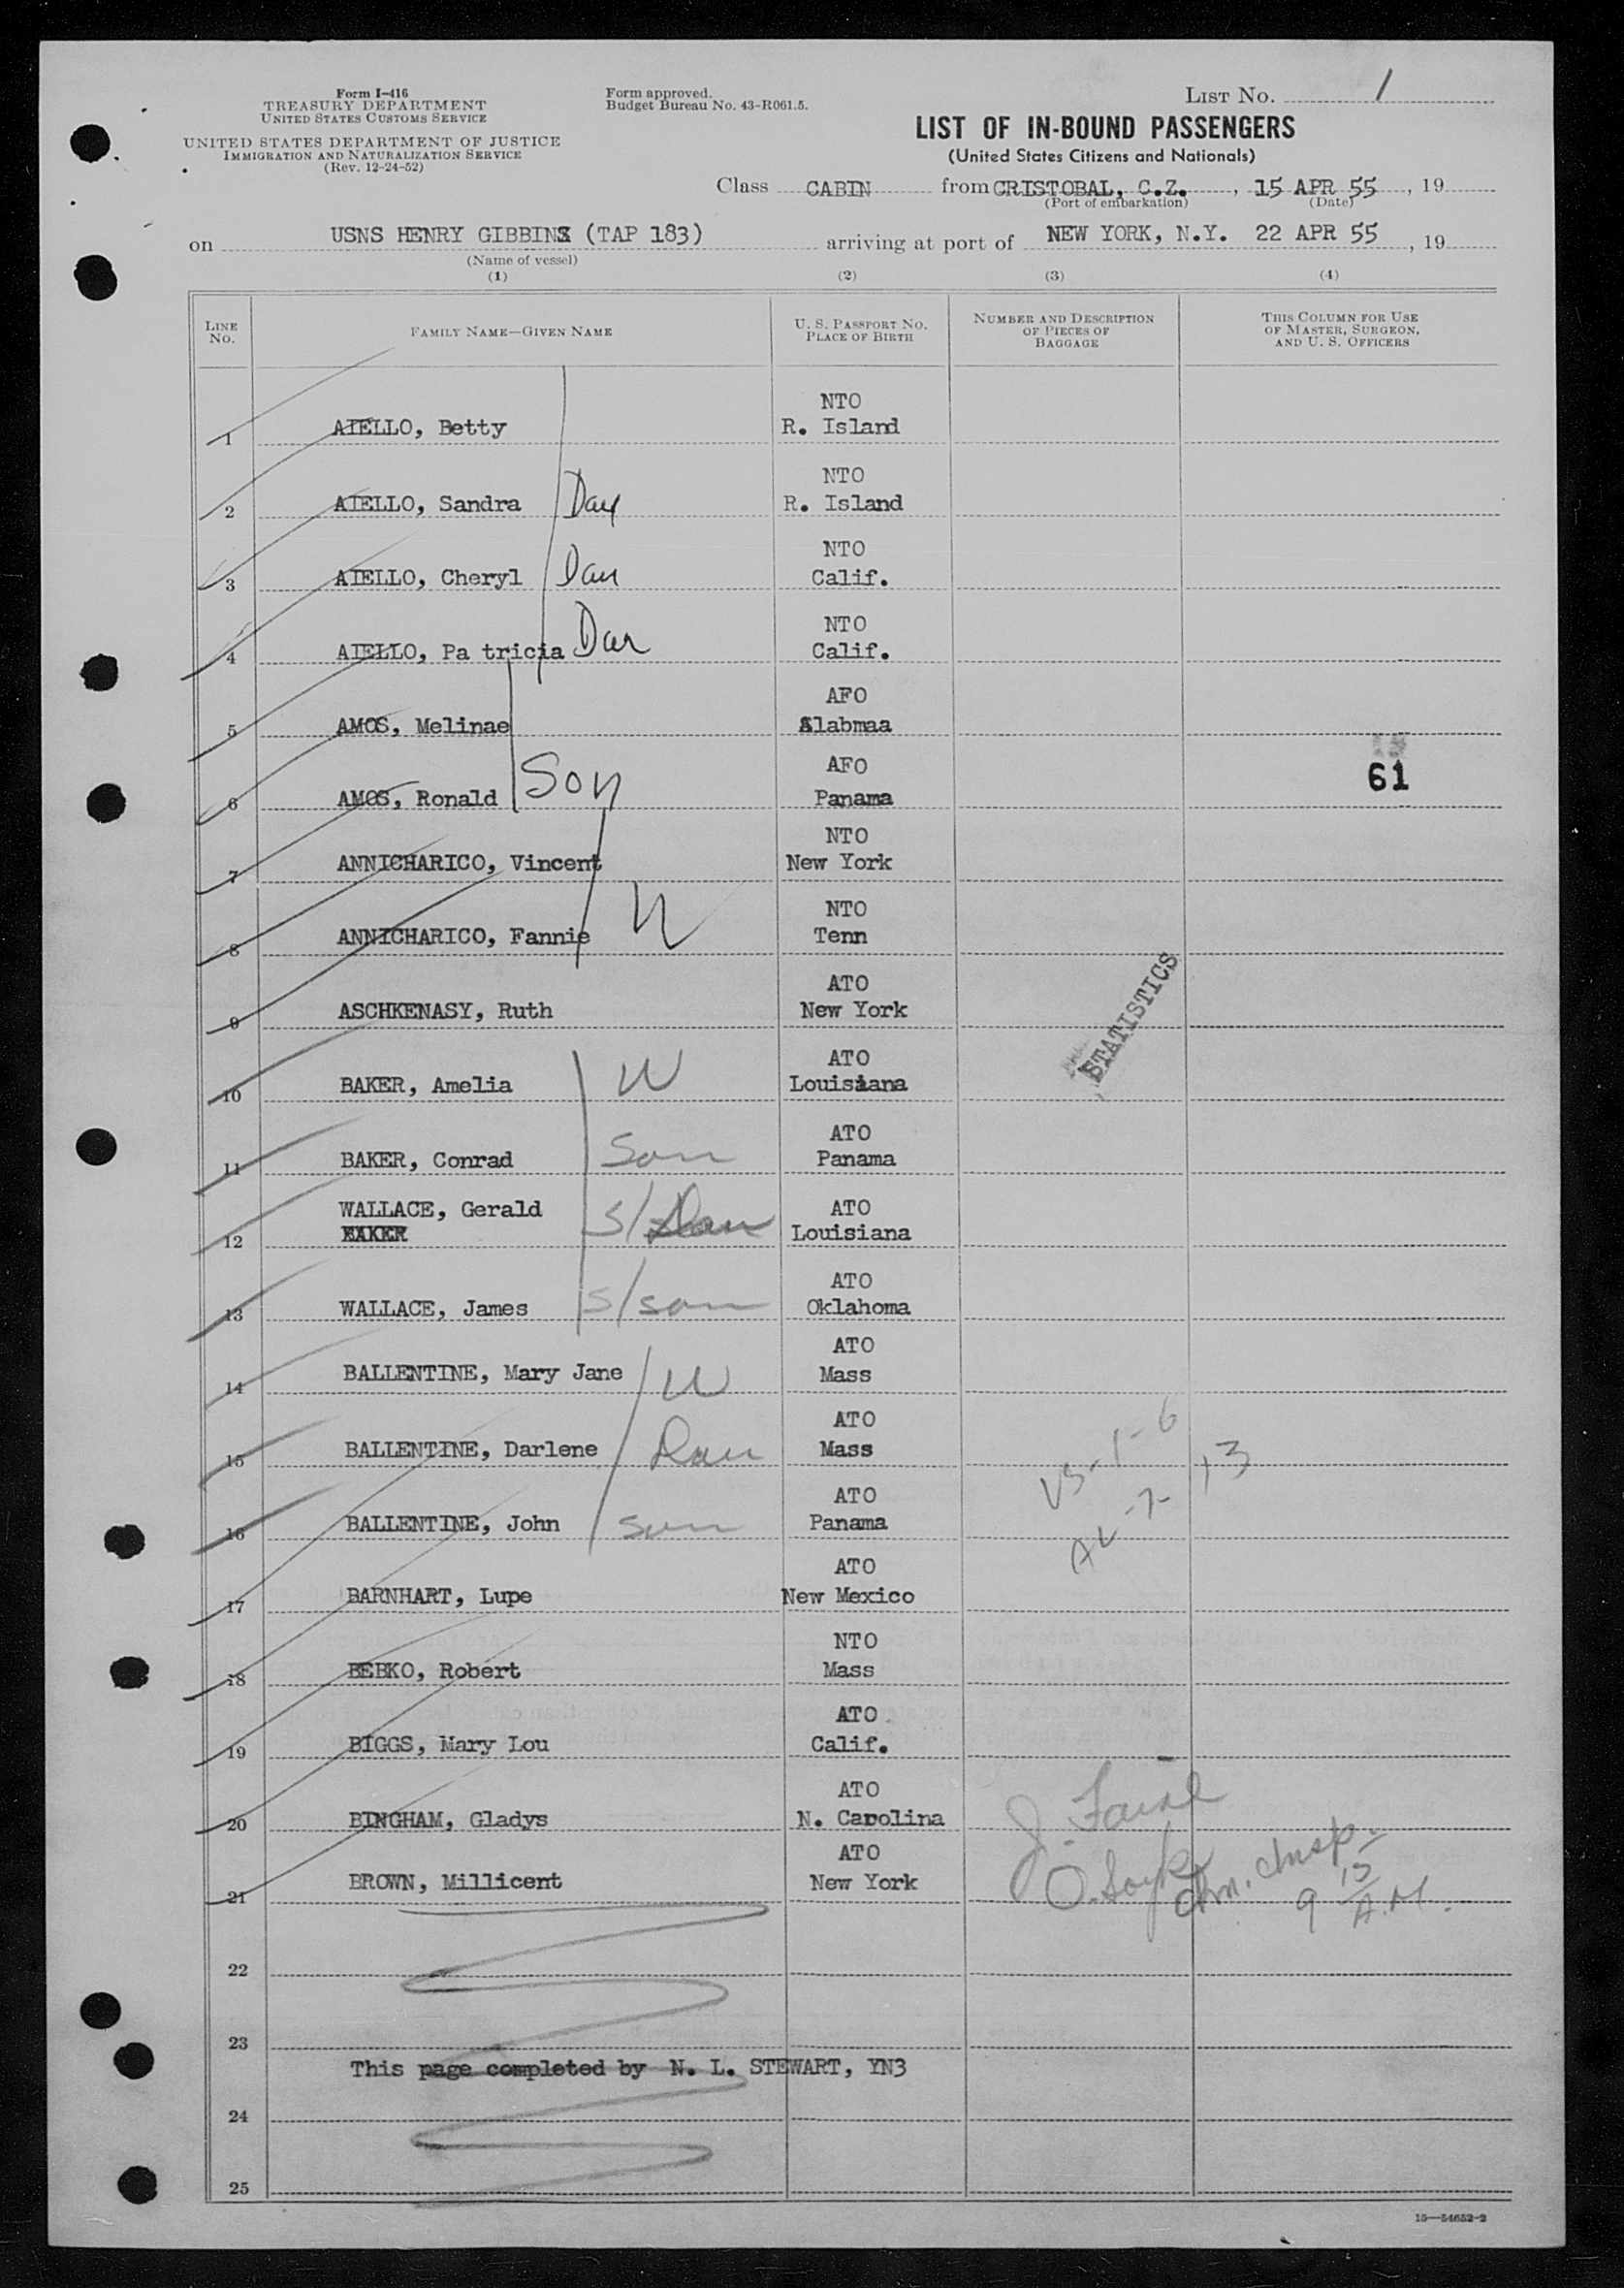 Form I-416
TREASURY DEPARTMENT
UNITED STATES CUSTOMS SERVICE
UNITED STATES DEPARTMENT OF JUSTICE
IMMIGRATION AND NATURALIZATION SERVICE
(Rev. 12-24-52)
Form approved.
Budget Bureau No. 43-R061.5.
LIST NO. 1
LIST OF IN-BOUND PASSENGERS
(United States Citizens and Nationals)
Class CABIN from CRISTOBAL, C.Z., 15 APR 55, 19
(Port of embarkation) (Date)
on USNS HENRY GIBBINS (TAP 183) arriving at port of NEW YORK, N.Y. 22 APR 55, 19
(Name of vessel)
(1) (2) (3) (4)
LINE NO. FAMILY NAME—GIVEN NAME U. S. PASSPORT NO. PLACE OF BIRTH NUMBER AND DESCRIPTION OF PIECES OF BAGGAGE THIS COLUMN FOR USE OF MASTER, SURGEON, AND U. S. OFFICERS
NTO
1 AIELLO, Betty R. Island
NTO
2 AIELLO, Sandra Dau R. Island
NTO
3 AIELLO, Cheryl Dau Calif.
NTO
4 AIELLO, Pa tricia Dau Calif.
AFO
5 AMOS, Melinae Alabmaa
AFO
6 AMOS, Ronald Son Panama 61
NTO
7 ANNICHARICO, Vincent New York
NTO
8 ANNICHARICO, Fannie W Tenn
ATO
9 ASCHKENASY, Ruth New York
STATISTICS
ATO
10 BAKER, Amelia W Louisiana
ATO
11 BAKER, Conrad Son Panama
WALLACE, Gerald ATO
12 BAKER S/Dau Louisiana
ATO
13 WALLACE, James S/son Oklahoma
ATO
14 BALLENTINE, Mary Jane W Mass
ATO
15 BALLENTINE, Darlene Dau Mass
ATO
16 BALLENTINE, John son Panama
ATO
17 BARNHART, Lupe New Mexico
NTO
18 BEBKO, Robert Mass
ATO
19 BIGGS, Mary Lou Calif.
ATO
20 BINGHAM, Gladys N. Carolina
ATO
21 BROWN, Millicent New York
Imm. Insp.
9 15 A.M.
22
23
This page completed by N. L. STEWART, YN3
24
25
15—54652-2